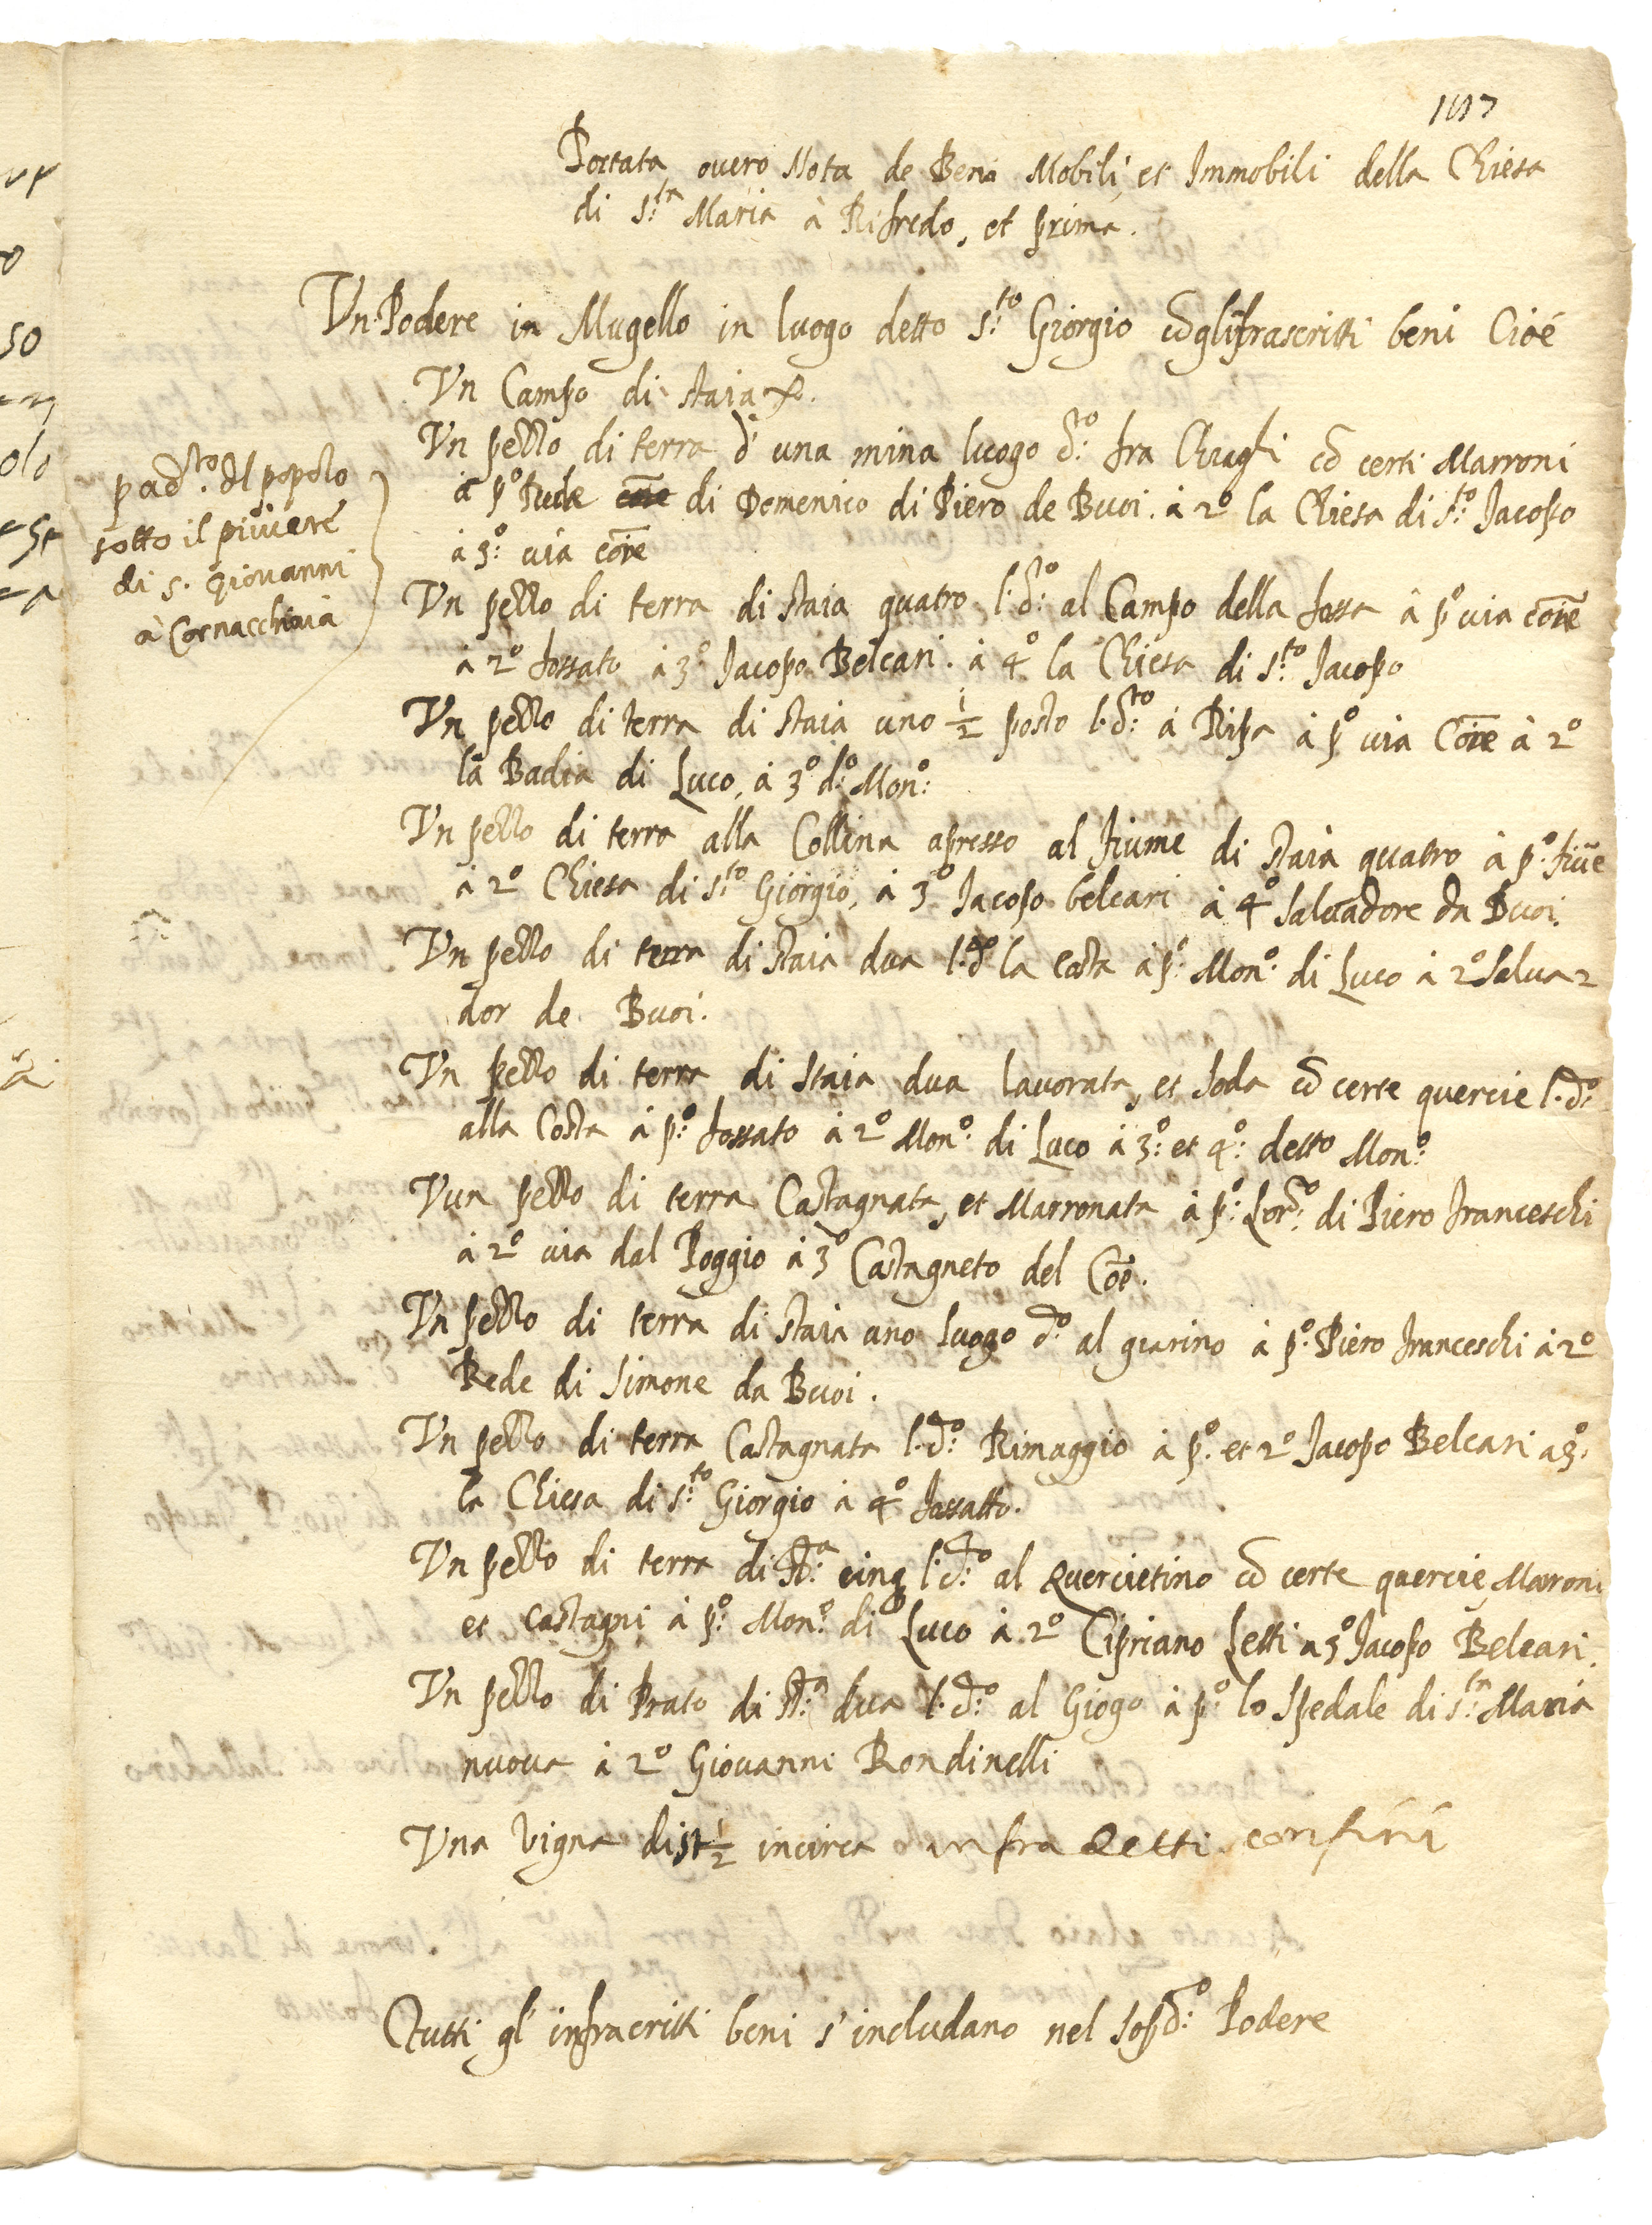 Portata overo Nota de Beni Mobili, et Immobili della Chiesa
di S.ta Maria à Rifredo, et prima.
Un Podere in Mugello in luogo detto S.to Giorgio cõ gl'ifrascritti beni Cioé
Un Campo di staia
Un pezzo di terra d'una mina luogo d.to fra cõ certi Marroni
à p.o di Domenico di Piero de Buoi. à 2.o la Chiesa di S.to Jacopo
à 3.o via cõıe
p ad.to dl popolo
sotto il piuuere
di S. Giouanni
à Cornacchiaia
Un pezzo di terra di staia quatro l. d.to al Campo della fossa à p.o via cõıe
à 2.o fossato à 3.o Jacopo Belcari. à 4.o la Chiesa di S.to Jacopo
Un pezzo di terra di staia uno 1/2 posto l. d.to à Ripa à p.o via Cõıe à 2.o
la Badia di Luco, à 3.o d.o Mon.o
Un pezzo di terra alla Collina apresso al fiume di staia quatro à p.o fiũe
à 2.o Chiesa di S.to Giorgio, à 3.o Jacopo belcari à 4.o Saluadore da Buoi.
Un pezzo di terra di staia dua l. d.o la Costa à p.o Mon.o di Luco à 2.o Salua
dor de Buoi.
Un pezzo di terra di staia dua lauorata, et soda cõ certe quercie l. d.o
alla Costa à p.o fossato à 2.o Mon.o di Luco à 3.o et 4.o detto Mon.o
Vun pezzo di terra Castagnata, et Marronata à p.o Lor.zo di Piero franceschi
à 2.o via dal Poggio à 3.o Castagneto del Cõe.
Un pezzo di terra di staia uno luogo d.o al giarino à p.o Piero franceschi à 2.o
Rede di Simone da Buoi.
Un pezzo di terra Castagnata l. d.o Rimaggio à p.o et 2.o Jacopo Belcari a 3.o
la Chiesa di S.to Giorgio à 4.o fossatto.
Un pezzo di terra di st.a cinq l. d.o al Quercietino cõ certe quercie, Marroni
et castagni à p.o Mon.o di Luco à 2.o Cipriano Letti a 3.o Jacopo Belcari.
Un pezzo di Prato di st.a dua l. d.o al Giogo à p.o lo Spedale di S.ta Maria
nuoua à 2.o Giouanni Rondinelli
Una Vigna di st 1/2 incirca infra detti confini
Tutti gl'infracritti beni s'includano nel sop.d.o Podere